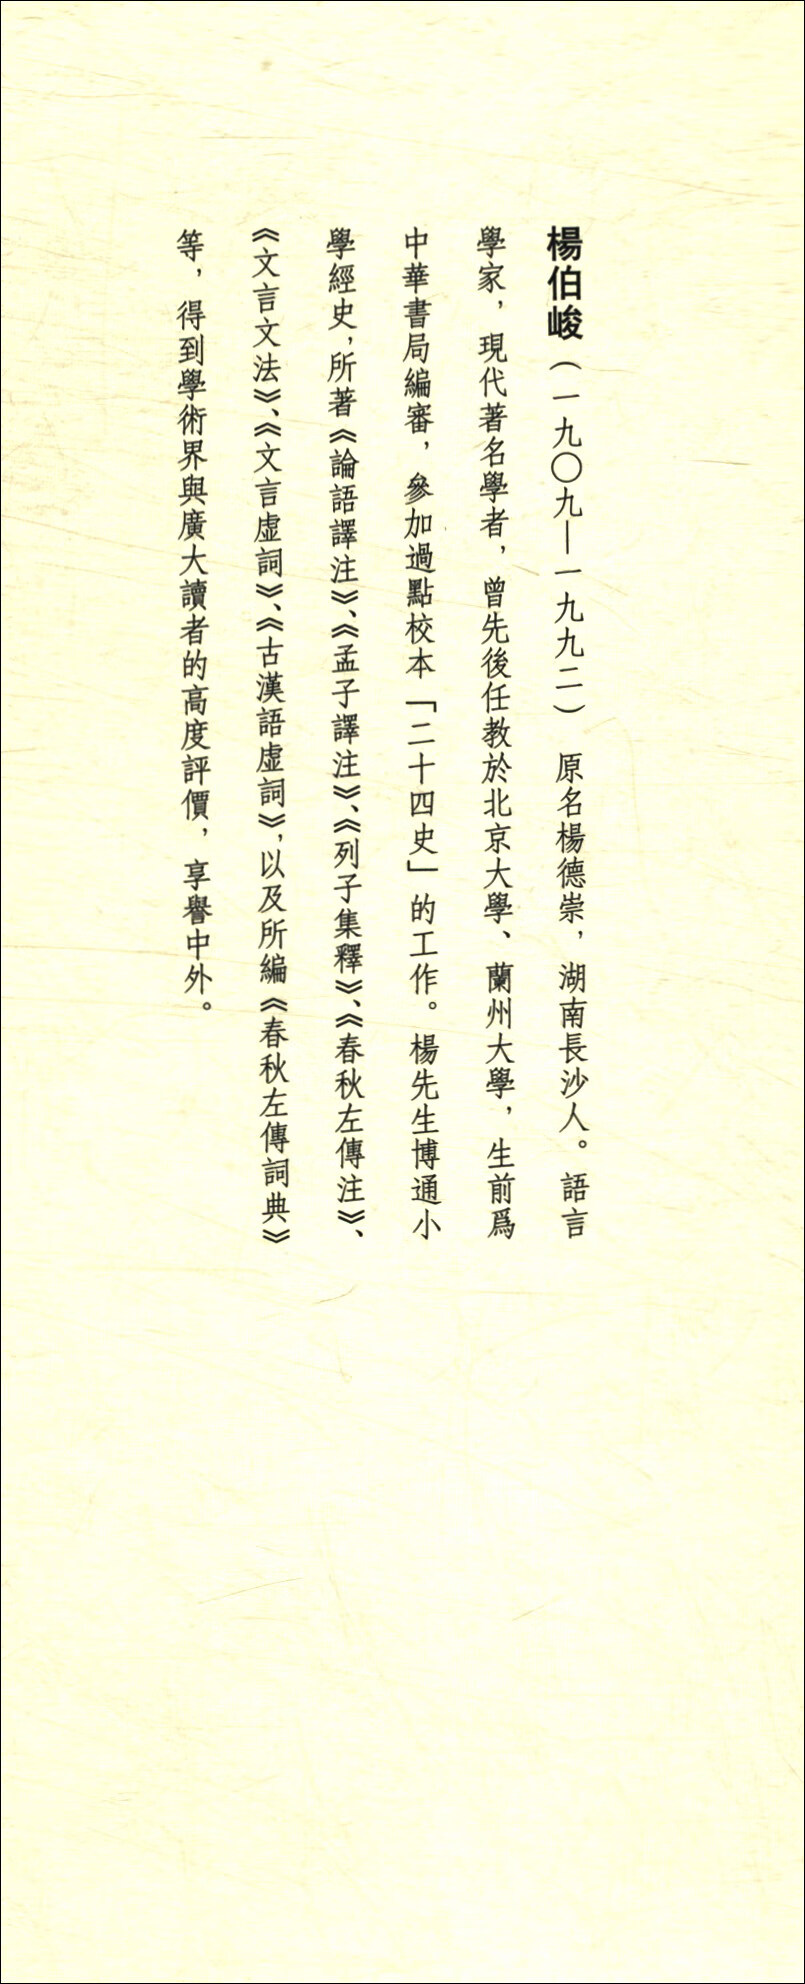 楊伯峻（一九〇九—一九九二）　原名楊德崇，湖南長沙人。語言
學家，現代著名學者，曾先後任教於北京大學、蘭州大學，生前爲
中華書局編審，參加過點校本「二十四史」的工作。楊先生博通小
學經史，所著《論語譯注》、《孟子譯注》、《列子集釋》、《春秋左傳注》、
《文言文法》、《文言虛詞》、《古漢語虛詞》，以及所編《春秋左傳詞典》
等，得到學術界與廣大讀者的高度評價，享譽中外。